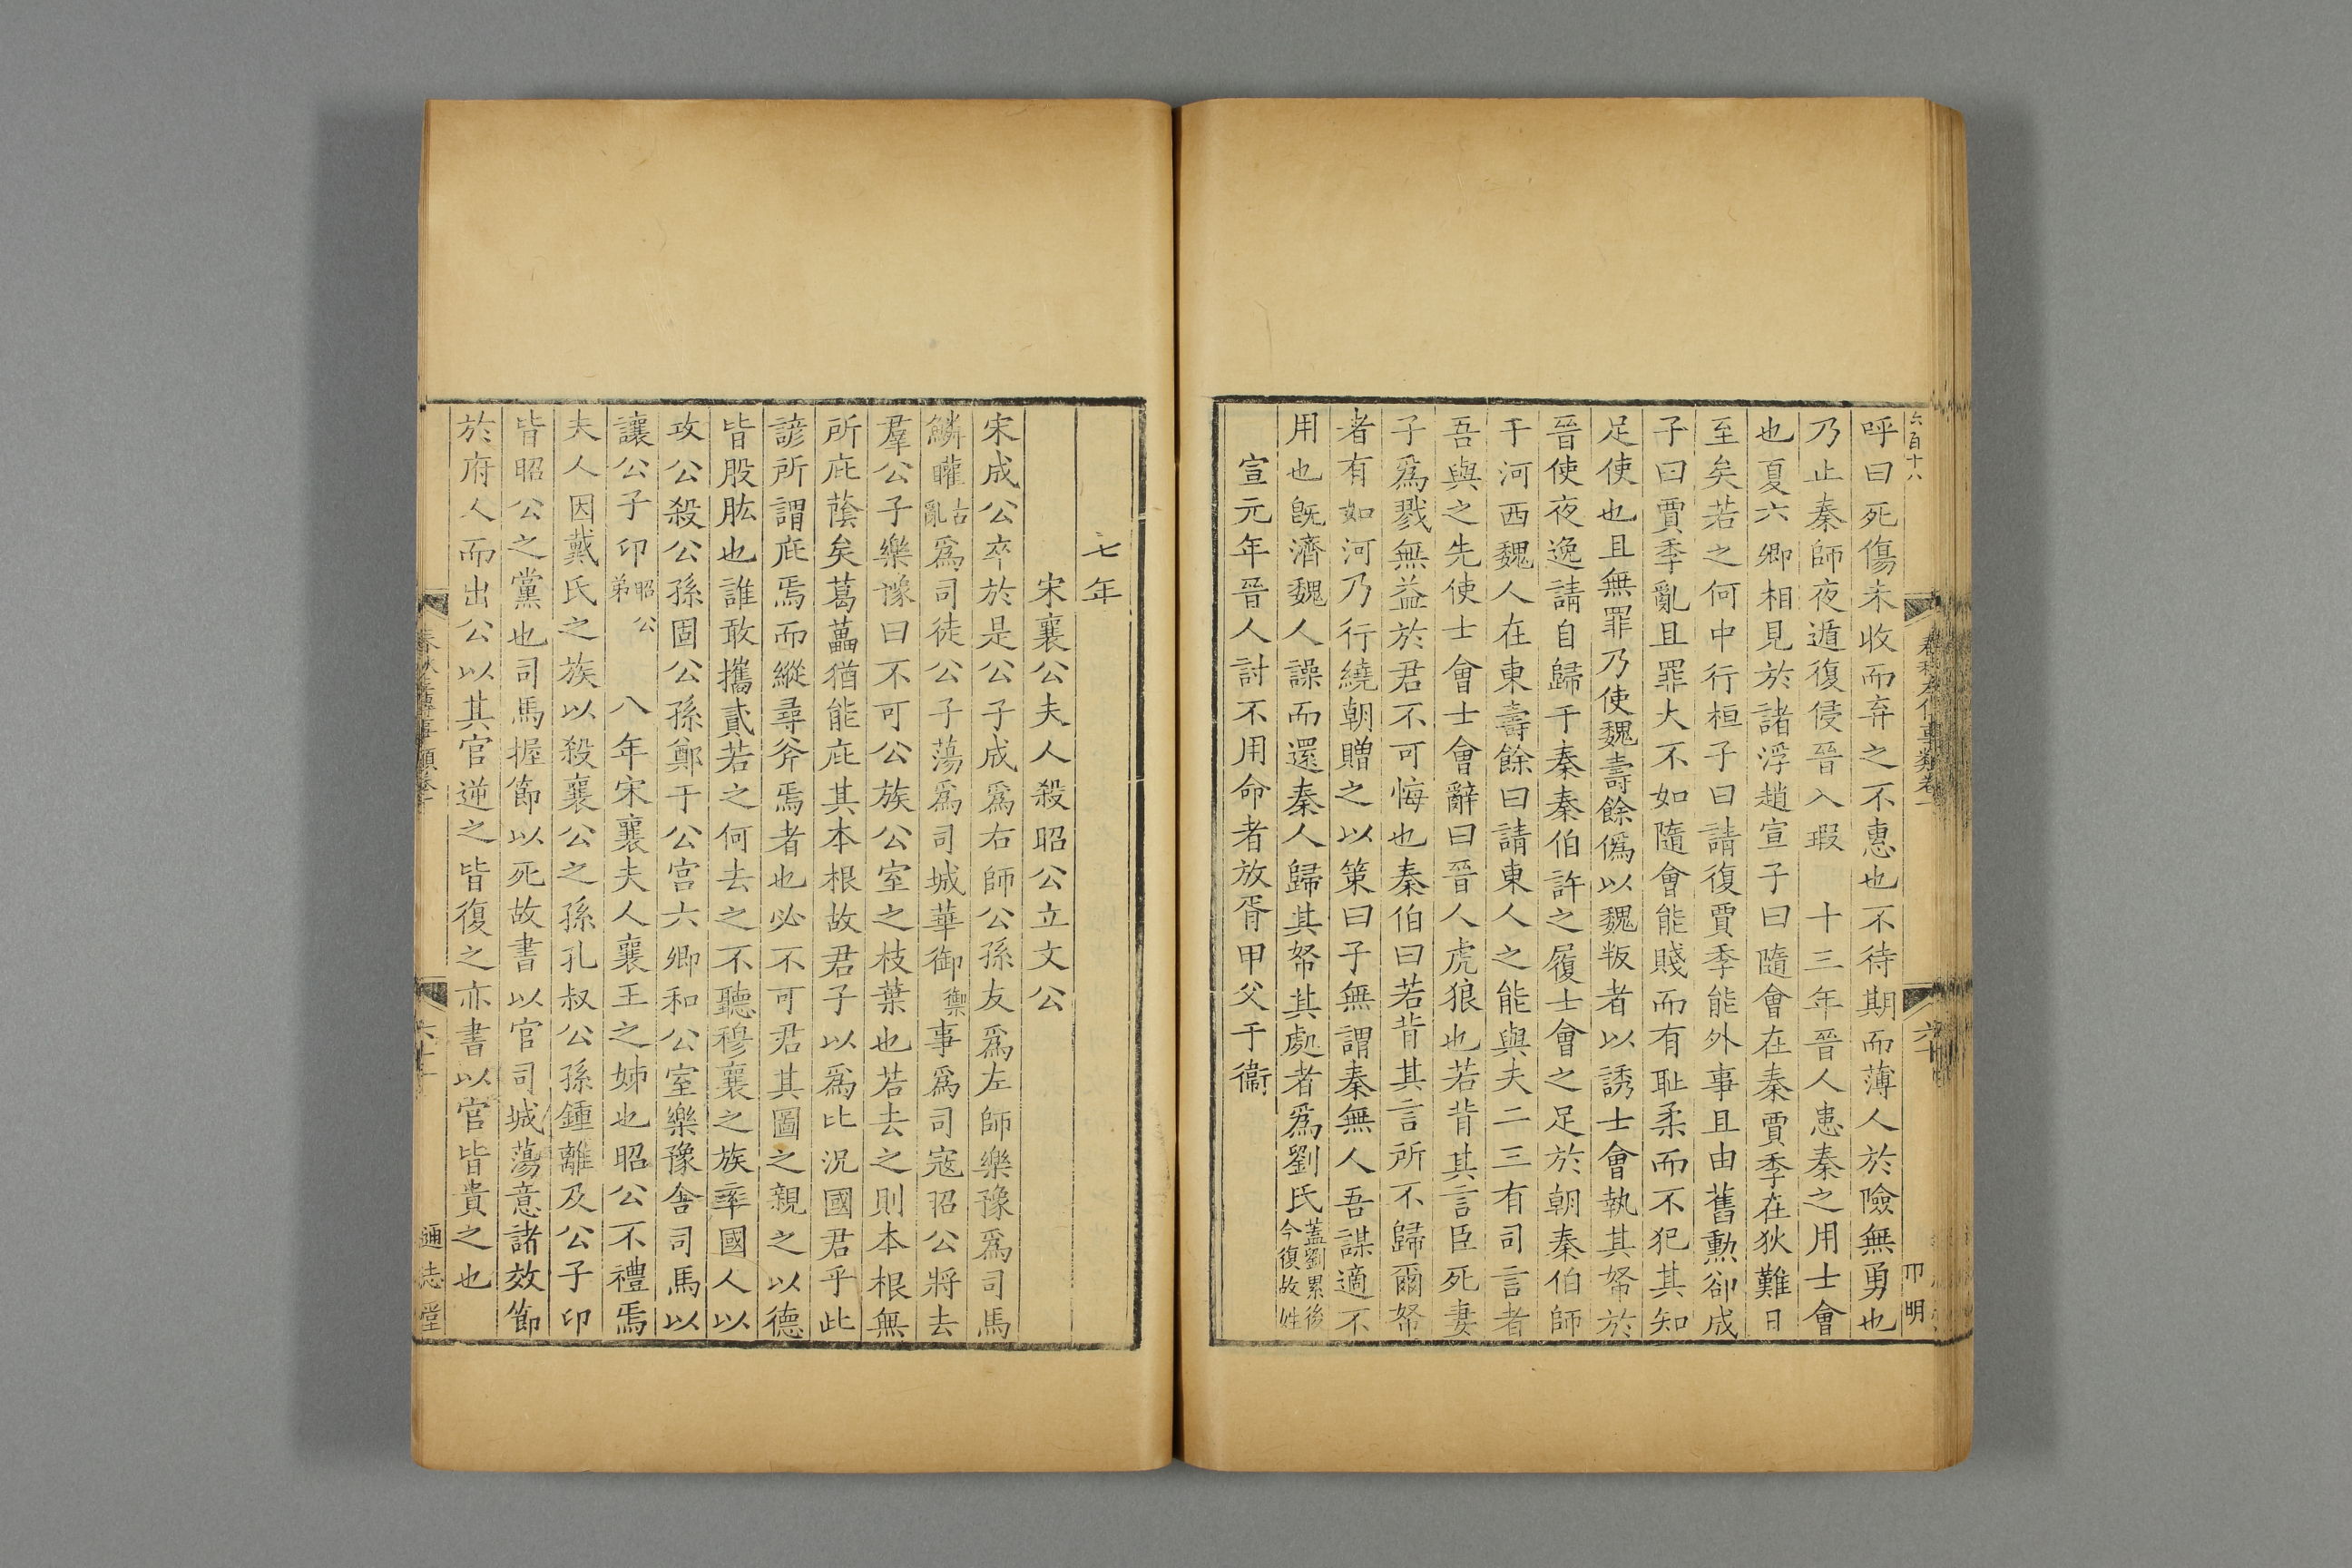 六百十八
呼曰死傷未收而弃之不惠也不待期而薄人於險無勇也
乃止秦師夜遁復侵晉入瑕　十三年晉人患秦之用士會
也夏六卿相見於諸浮趙宣子曰隨會在秦賈季在狄難日
至矣若之何中行桓子曰請復賈季能外事且由舊勲郤成
子曰賈季亂且罪大不如隨會能賤而有耻柔而不犯其知
足使也且無罪乃使魏壽餘僞以魏叛者以誘士會執其帑於
晉使夜逸請自歸于秦秦伯許之履士會之足於朝秦伯師
于河西魏人在東壽餘曰請東人之能與夫二三有司言者
吾與之先使士會士會辭曰晉人虎狼也若背其言臣死妻
子爲戮無益於君不可悔也秦伯曰若背其言所不歸爾帑
者有如河乃行繞朝贈之以策曰子無謂秦無人吾謀適不
用也既濟魏人譟而還秦人歸其帑其處者爲劉氏蓋劉累後今復故姓
宣元年晉人討不用命者放胥甲父于衞
春秋左傳事類卷一
明
七年
宋襄公夫人殺昭公立文公
宋成公卒於是公子成爲右師公孫友爲左師樂豫爲司馬
鱗矔古亂爲司徒公子蕩爲司城華御禦事爲司寇昭公將去
羣公子樂豫曰不可公族公室之枝葉也若去之則本根無
所庇蔭矣葛藟猶能庇其本根故君子以爲比況國君乎此
諺所謂庇焉而縱尋斧焉者也必不可君其圖之親之以德
皆股肱也誰敢攜貳若之何去之不聽穆襄之族率國人以
攻公殺公孫固公孫鄭于公宫六卿和公室樂豫舍司馬以
讓公子卬昭公弟　八年宋襄夫人襄王之姊也昭公不禮焉
夫人因戴氏之族以殺襄公之孫孔叔公孫鍾離及公子卬
皆昭公之黨也司馬握節以死故書以官司城蕩意諸效節
於府人而出公以其官逆之皆復之亦書以官皆貴之也
通志堂